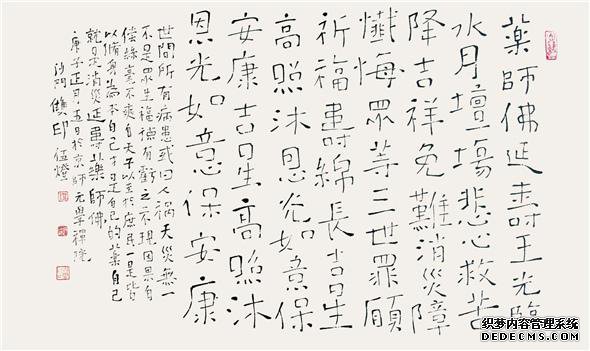 藥師佛延壽王光臨
水月壇場悲心救苦
降吉祥免難消災障
懺悔眾等三世罪願
祈福壽綿長吉星
高照沐恩光如意保
安康吉星高照沐
恩光如意保安康
世間所有病患或曰人禍天災無一
不是眾生福德有虧之不現因果自
償絲毫不爽自天子以至於庶民一是皆
以脩身為本自己才是自己的藥自己
就是消災延壽藥師佛
庚子正月五日於京師元學禪院
沙門雙印
织梦内容管理系统
DEDECMS.COM